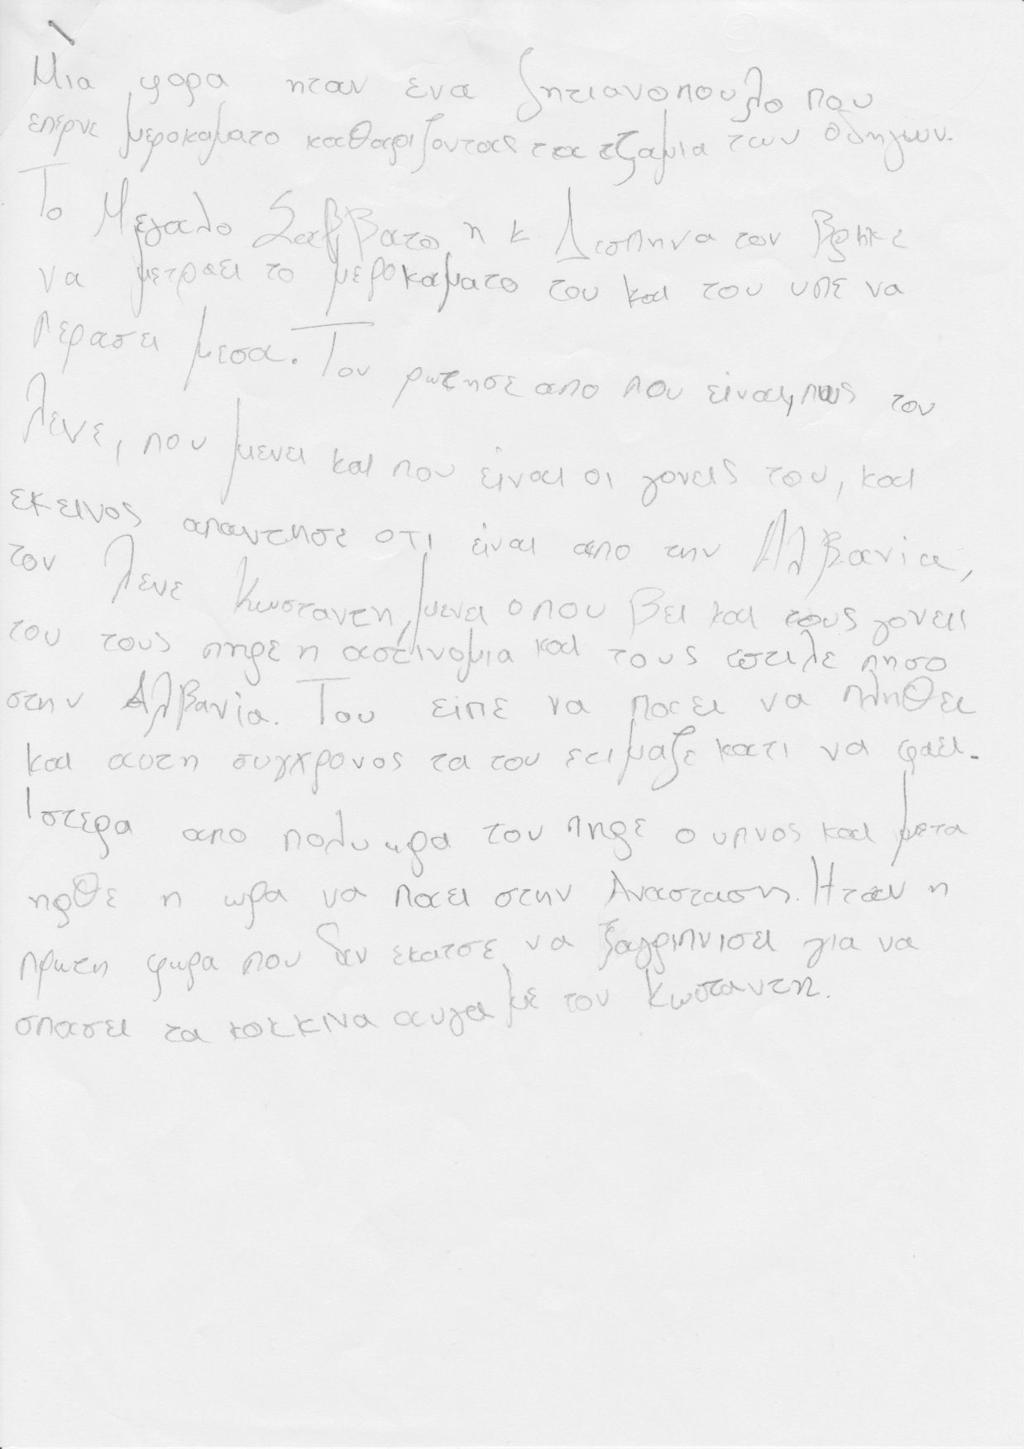 Μια φορα ηταν ενα ζητιανοπουλο που
επερνε μεροκαματο καθαριζοντας τα τζαμια των οδηγων.
Το Μεγαλο Σαββατο η κ Δεσπηνα τον βρηκε
να μετραει το μεροκαματο του και του υπε να
περασει μεσα. Τον ρωτησε απο που είναι, πως τον
λενε, που μενει και που είναι οι γονεις του, και
εκεινος απαντησε οτι είναι απο την Αλβανία,
τον λενε Κωσταντη, μενει οπου βει και τους γονεις
του τους πηρε η αστινομια και τους εστειλε πησο
στην Αλβανία. Του είπε να παει να πληθει
και αυτη συγχρονος τα του ετιμαζε κατι να φαει.
Ιστερα απο πολυ ωρα τον πηρε ο υπνος και μετα
ηρθε η ωρα να παει στην Ανασταση. Ηταν η
πρωτη φωρα που δεν εκατσε να ξαγριπνισει για να
σπασει τα κοκκινα αυγα με τον Κωσταντη.